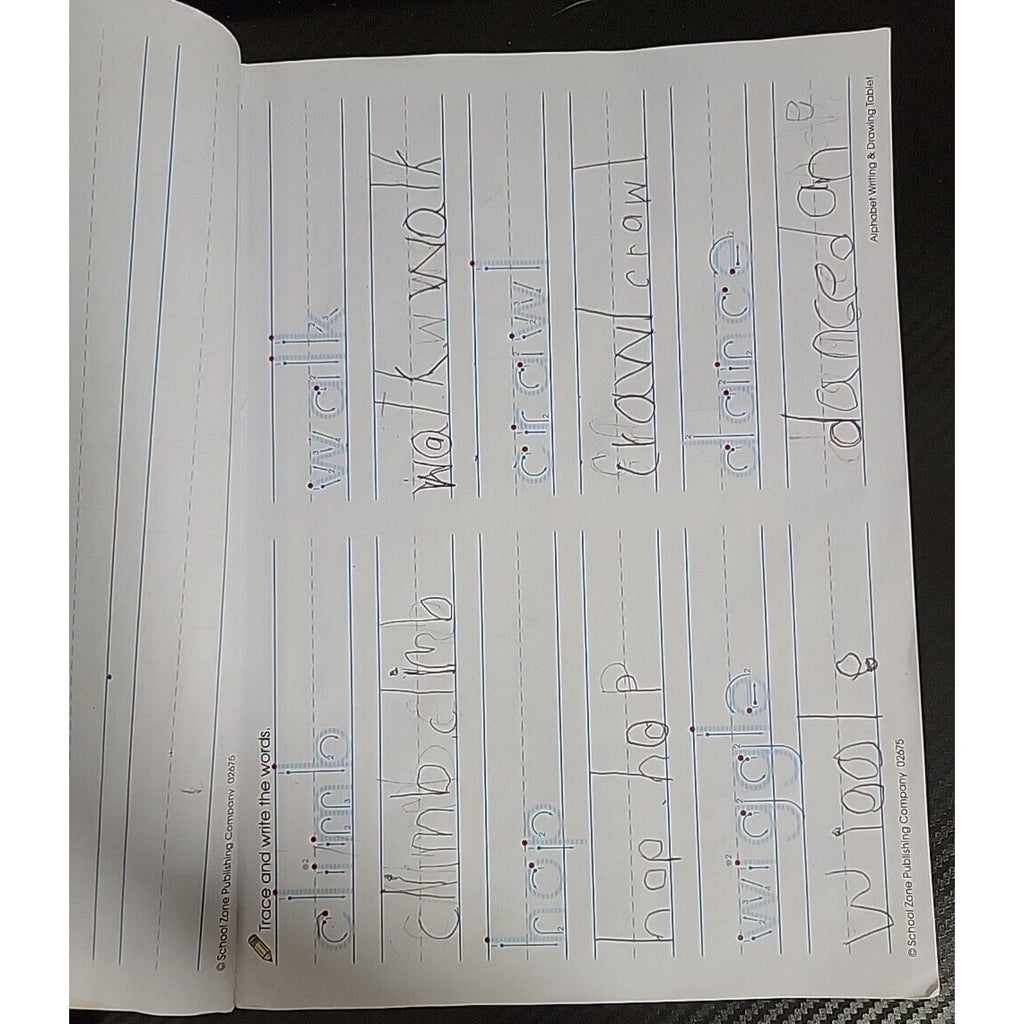 Trace and write the words.
climb
climb climb
hop
hop hop
wiggle
© School Zone Publishing Company 02675
walk
walk walk
crawl
crawl craw
dance
dance dan
Alphabet Writing & Drawing Tablet
© School Zone Publishing Company 02675